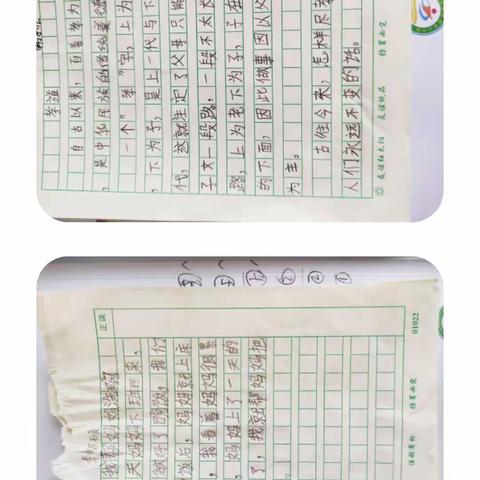 孝道
自古以来，百善孝为
，是中华民族的传统美德
一个"孝"字，上为
，下为子，是上一代与下
代，这就注定了父母只能
子女一段路，一段不太长
路，上为老下为子，子在
的下面，因此做事因以父
为主。
古往今来，怎样尽孝
人们永远不变的话。
友谊红太阳 友谊纸品 仿冒必究
正误
我帮妈妈洗碗
天妈妈下班回来。
做好了晚饭，我们
饭后，妈妈就上床
，我看着妈妈很累
，妈妈上了一天的
了，我就帮妈妈把
01022
注册商标 仿冒必究